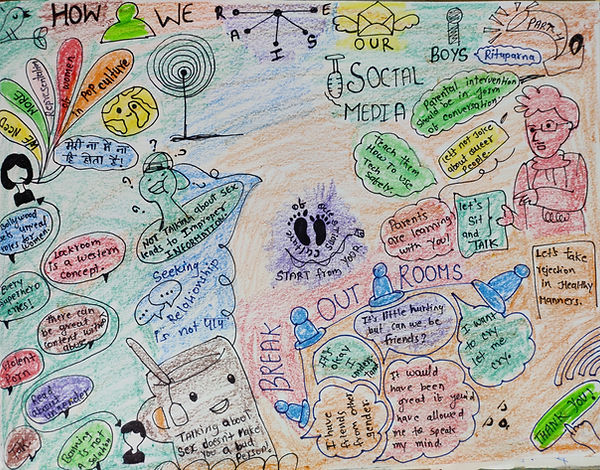 HOW WE
RAISE
OUR
BOYS
SOCIAL
MEDIA
PART
Rituparna
WE NEED
MORE
Representation
of women
in Pop culture
मेरी ना में ना
हां होता है!
Bollywood
sets unreal
roles for
women.
Lockroom
is a western
concept.
Every
Superhero
cries!
There can
be great
content without
abuse
Violent
Porn
Read
about
gender
Banning
is not
a solution
?
?
?
?
?
Not Talking about SEX
leads to Improper
INFORMATION
Seeking
Relationship
is not ugly
Talking about
sex doesn't make
you a bad
person!
START from YOUR
Parental intervention
should be in form
of conversation.
Teach them
How to use
Tech
safely.
Let's not joke
about queer
people.
Parents
are learning
with You!
Let's
Sit
and
TALK
Let's take
rejection
in Healthy
Manners.
BREAK OUT ROOMS
It's little hurting
but can we be
friends?
It's
okay I
understand
I want
to cry
let me
cry.
I have
friends from
other
gender.
It would
have been
great if you'd
have allowed
me to speak
my mind.
THANK YOU!